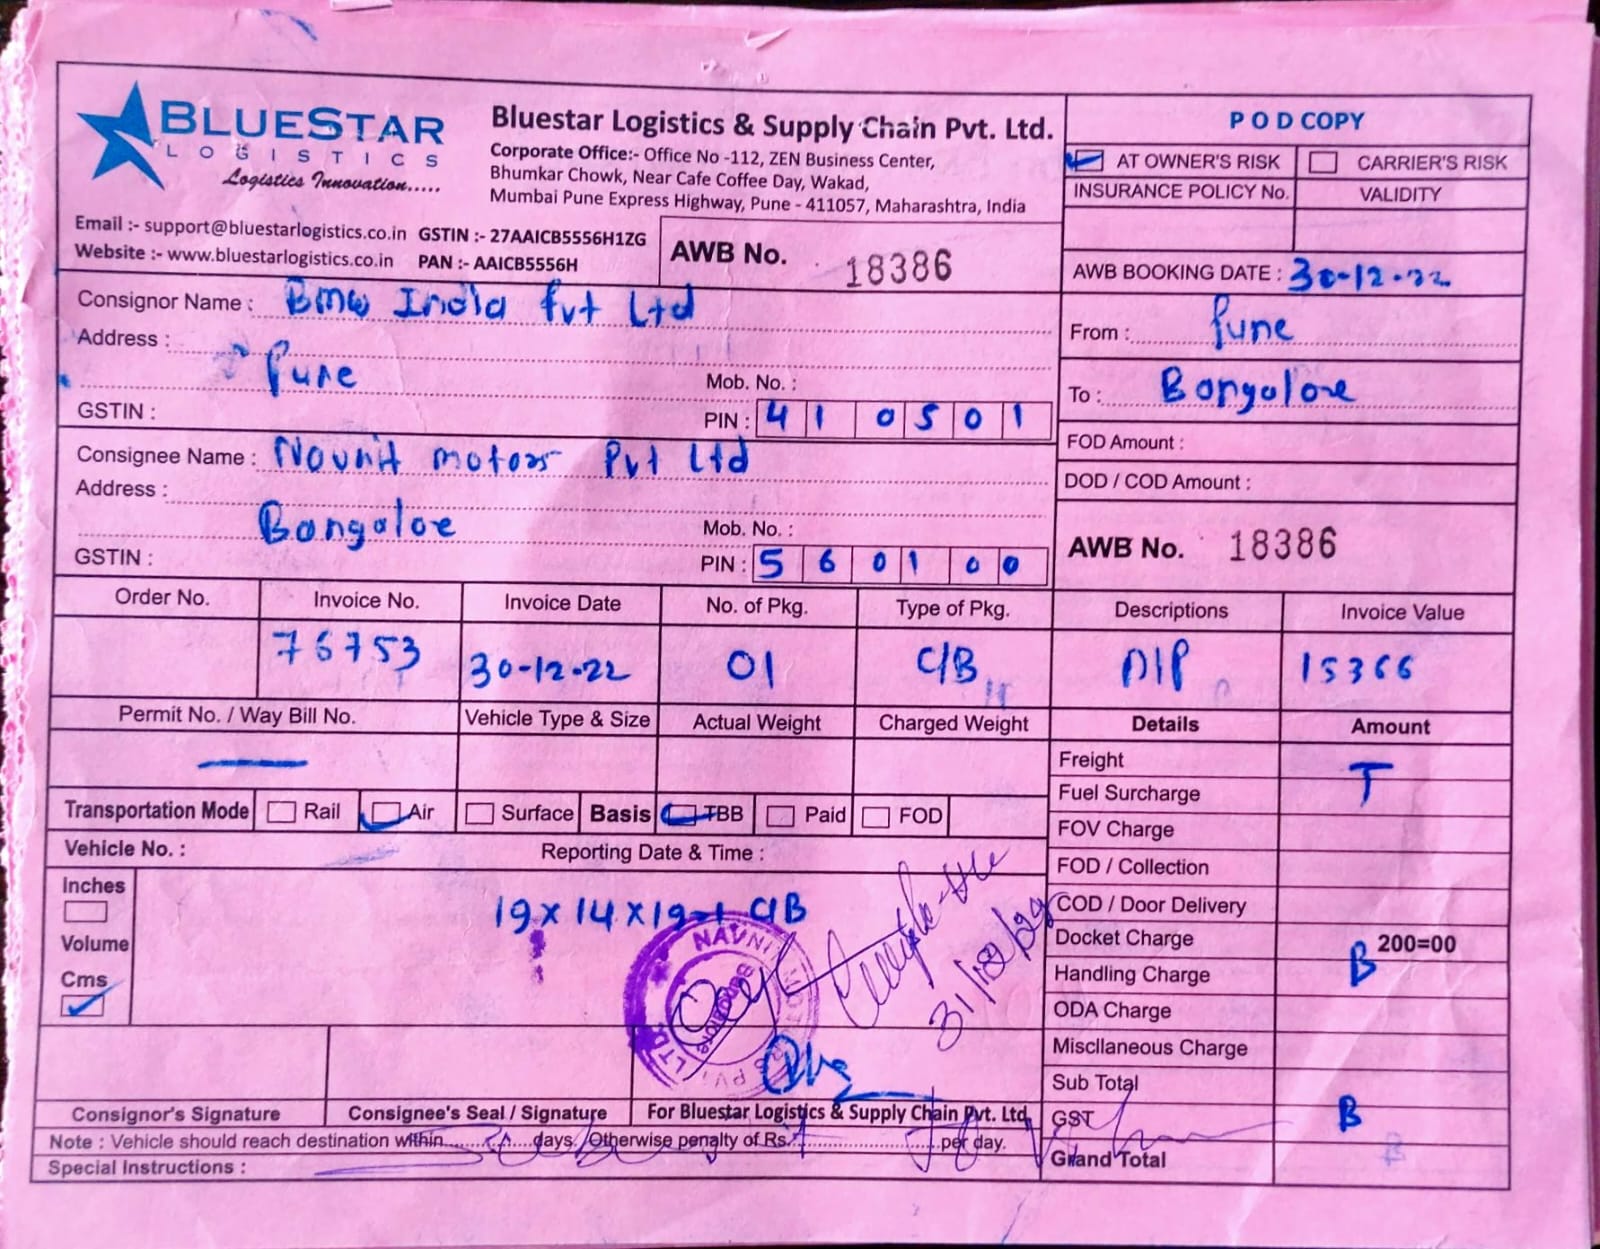 BLUESTAR
LOGISTICS
Logistics Innovation.....
Bluestar Logistics & Supply Chain Pvt. Ltd.
Corporate Office:- Office No -112, ZEN Business Center,
Bhumkar Chowk, Near Cafe Coffee Day, Wakad,
Mumbai Pune Express Highway, Pune - 411057, Maharashtra, India
Email :- support@bluestarlogistics.co.in GSTIN :- 27AAICB5556H1ZG
Website :- www.bluestarlogistics.co.in PAN :- AAICB5556H
AWB No. 18386
POD COPY
AT OWNER'S RISK CARRIER'S RISK
INSURANCE POLICY No. VALIDITY
AWB BOOKING DATE : 30-12-22
From : Pune
To : Bangalore
FOD Amount :
DOD / COD Amount :
AWB No. 18386
Consignor Name : BMW India Pvt Ltd
Address :
Pune Mob. No. :
GSTIN : PIN : 410501
Consignee Name : Navnit motors Pvt Ltd
Address :
Bangaloe Mob. No. :
GSTIN : PIN : 560100
Order No. Invoice No. Invoice Date No. of Pkg. Type of Pkg. Descriptions Invoice Value
76753 30-12-22 01 C/B AIP 15366
Permit No. / Way Bill No. Vehicle Type & Size Actual Weight Charged Weight Details Amount
Transportation Mode Rail Air Surface Basis TBB Paid FOD
Vehicle No. : Reporting Date & Time :
Inches
Volume
Cms
19x14x19-1 C/B
31/12/22
NAVNIT MOTORS PVT LTD
Bangalore
Freight T
Fuel Surcharge
FOV Charge
FOD / Collection
COD / Door Delivery
Docket Charge 200=00
Handling Charge B
ODA Charge
Miscllaneous Charge
Sub Total
GST B
Grand Total
Consignor's Signature Consignee's Seal / Signature For Bluestar Logistics & Supply Chain Pvt. Ltd.
Note : Vehicle should reach destination within.......days. Otherwise penalty of Rs..........per day.
Special Instructions :